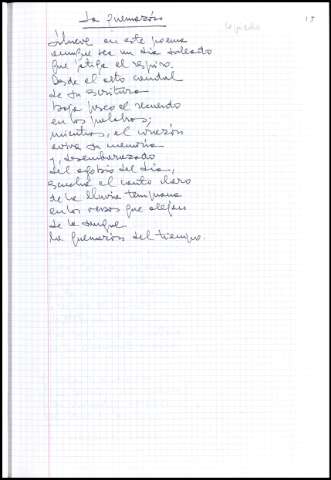 La quemazón
copiado
15
Llueve en este poema
aunque sea un día soleado
que fatiga el respiro.
Desde el alto caudal
de su escritura
baja fresco el recuerdo
en las palabras;
mientras, el corazón
aviva su memoria
y, desembarazado
del agobio del día,
escucha el canto claro
de la lluvia temprana
en los versos que alejan
de la sangre
la quemazón del tiempo.